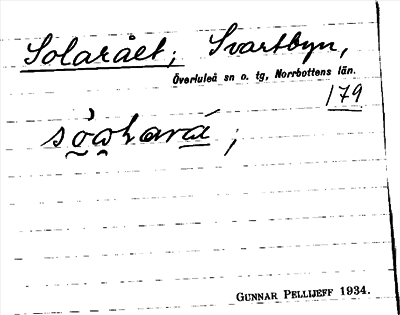 Solarået; Svartbyn,
Överluleå sn o. tg, Norrbottens län.
179
;
GUNNAR PELLIJEFF 1934.